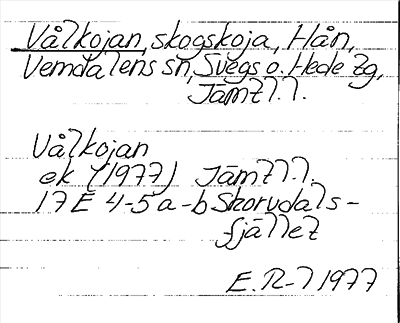 Vålkojan, skogskoja, Hån,
Vemdalens sn, Svegs o. Hede tg,
Jämtl.l.
Vålkojan
ek (1977) Jämtl.l.
17E 4-5 a-b Skorvdals-
fjället
E.R-l 1977